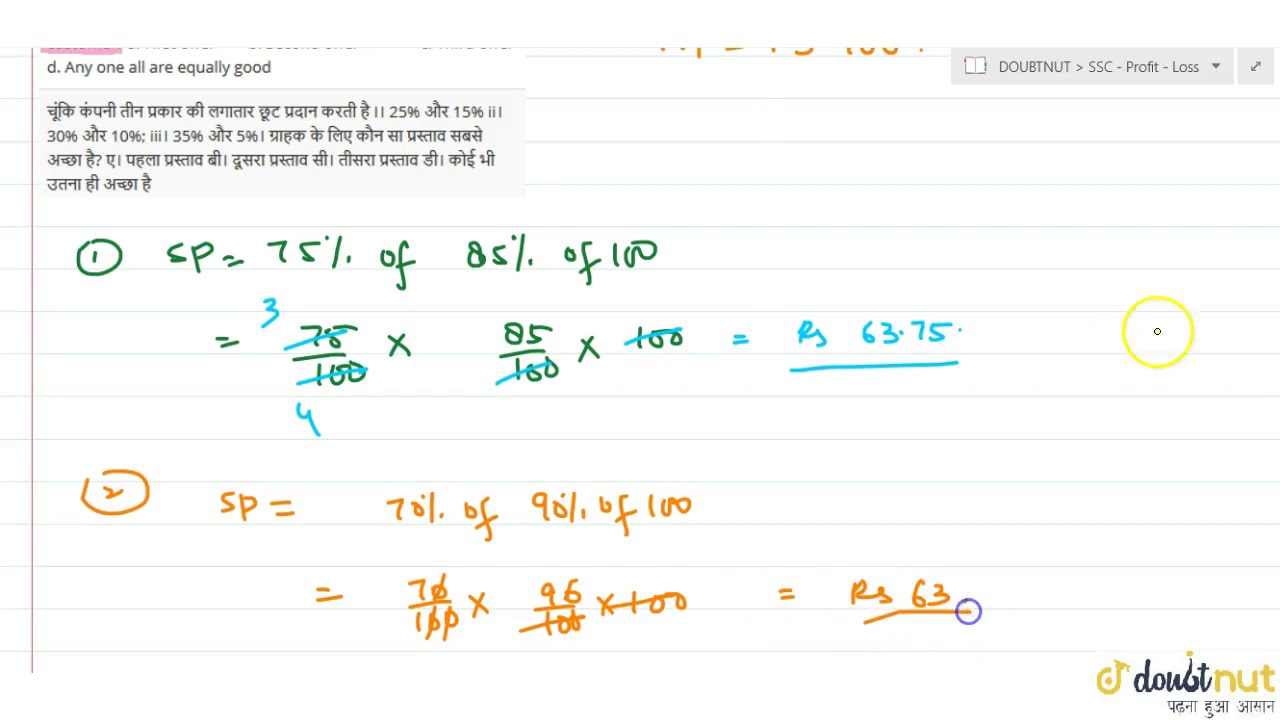 DOUBTNUT > SSC - Profit - Loss
d. Any one all are equally good
चूंकि कंपनी तीन प्रकार की लगातार छूट प्रदान करती है ।। 25% और 15% ii।
30% और 10%; iii। 35% और 5%। ग्राहक के लिए कौन सा प्रस्ताव सबसे
अच्छा है? ए। पहला प्रस्ताव बी। दूसरा प्रस्ताव सी। तीसरा प्रस्ताव डी। कोई भी
उतना ही अच्छा है
① SP = 75% of 85% of 100
3
= 75/100 × 85/100 × 100 = Rs 63.75.
4
② SP = 70% of 90% of 100
= 70/100 × 90/100 × 100 = Rs 63
doubtnut
पढ़ना हुआ आसान